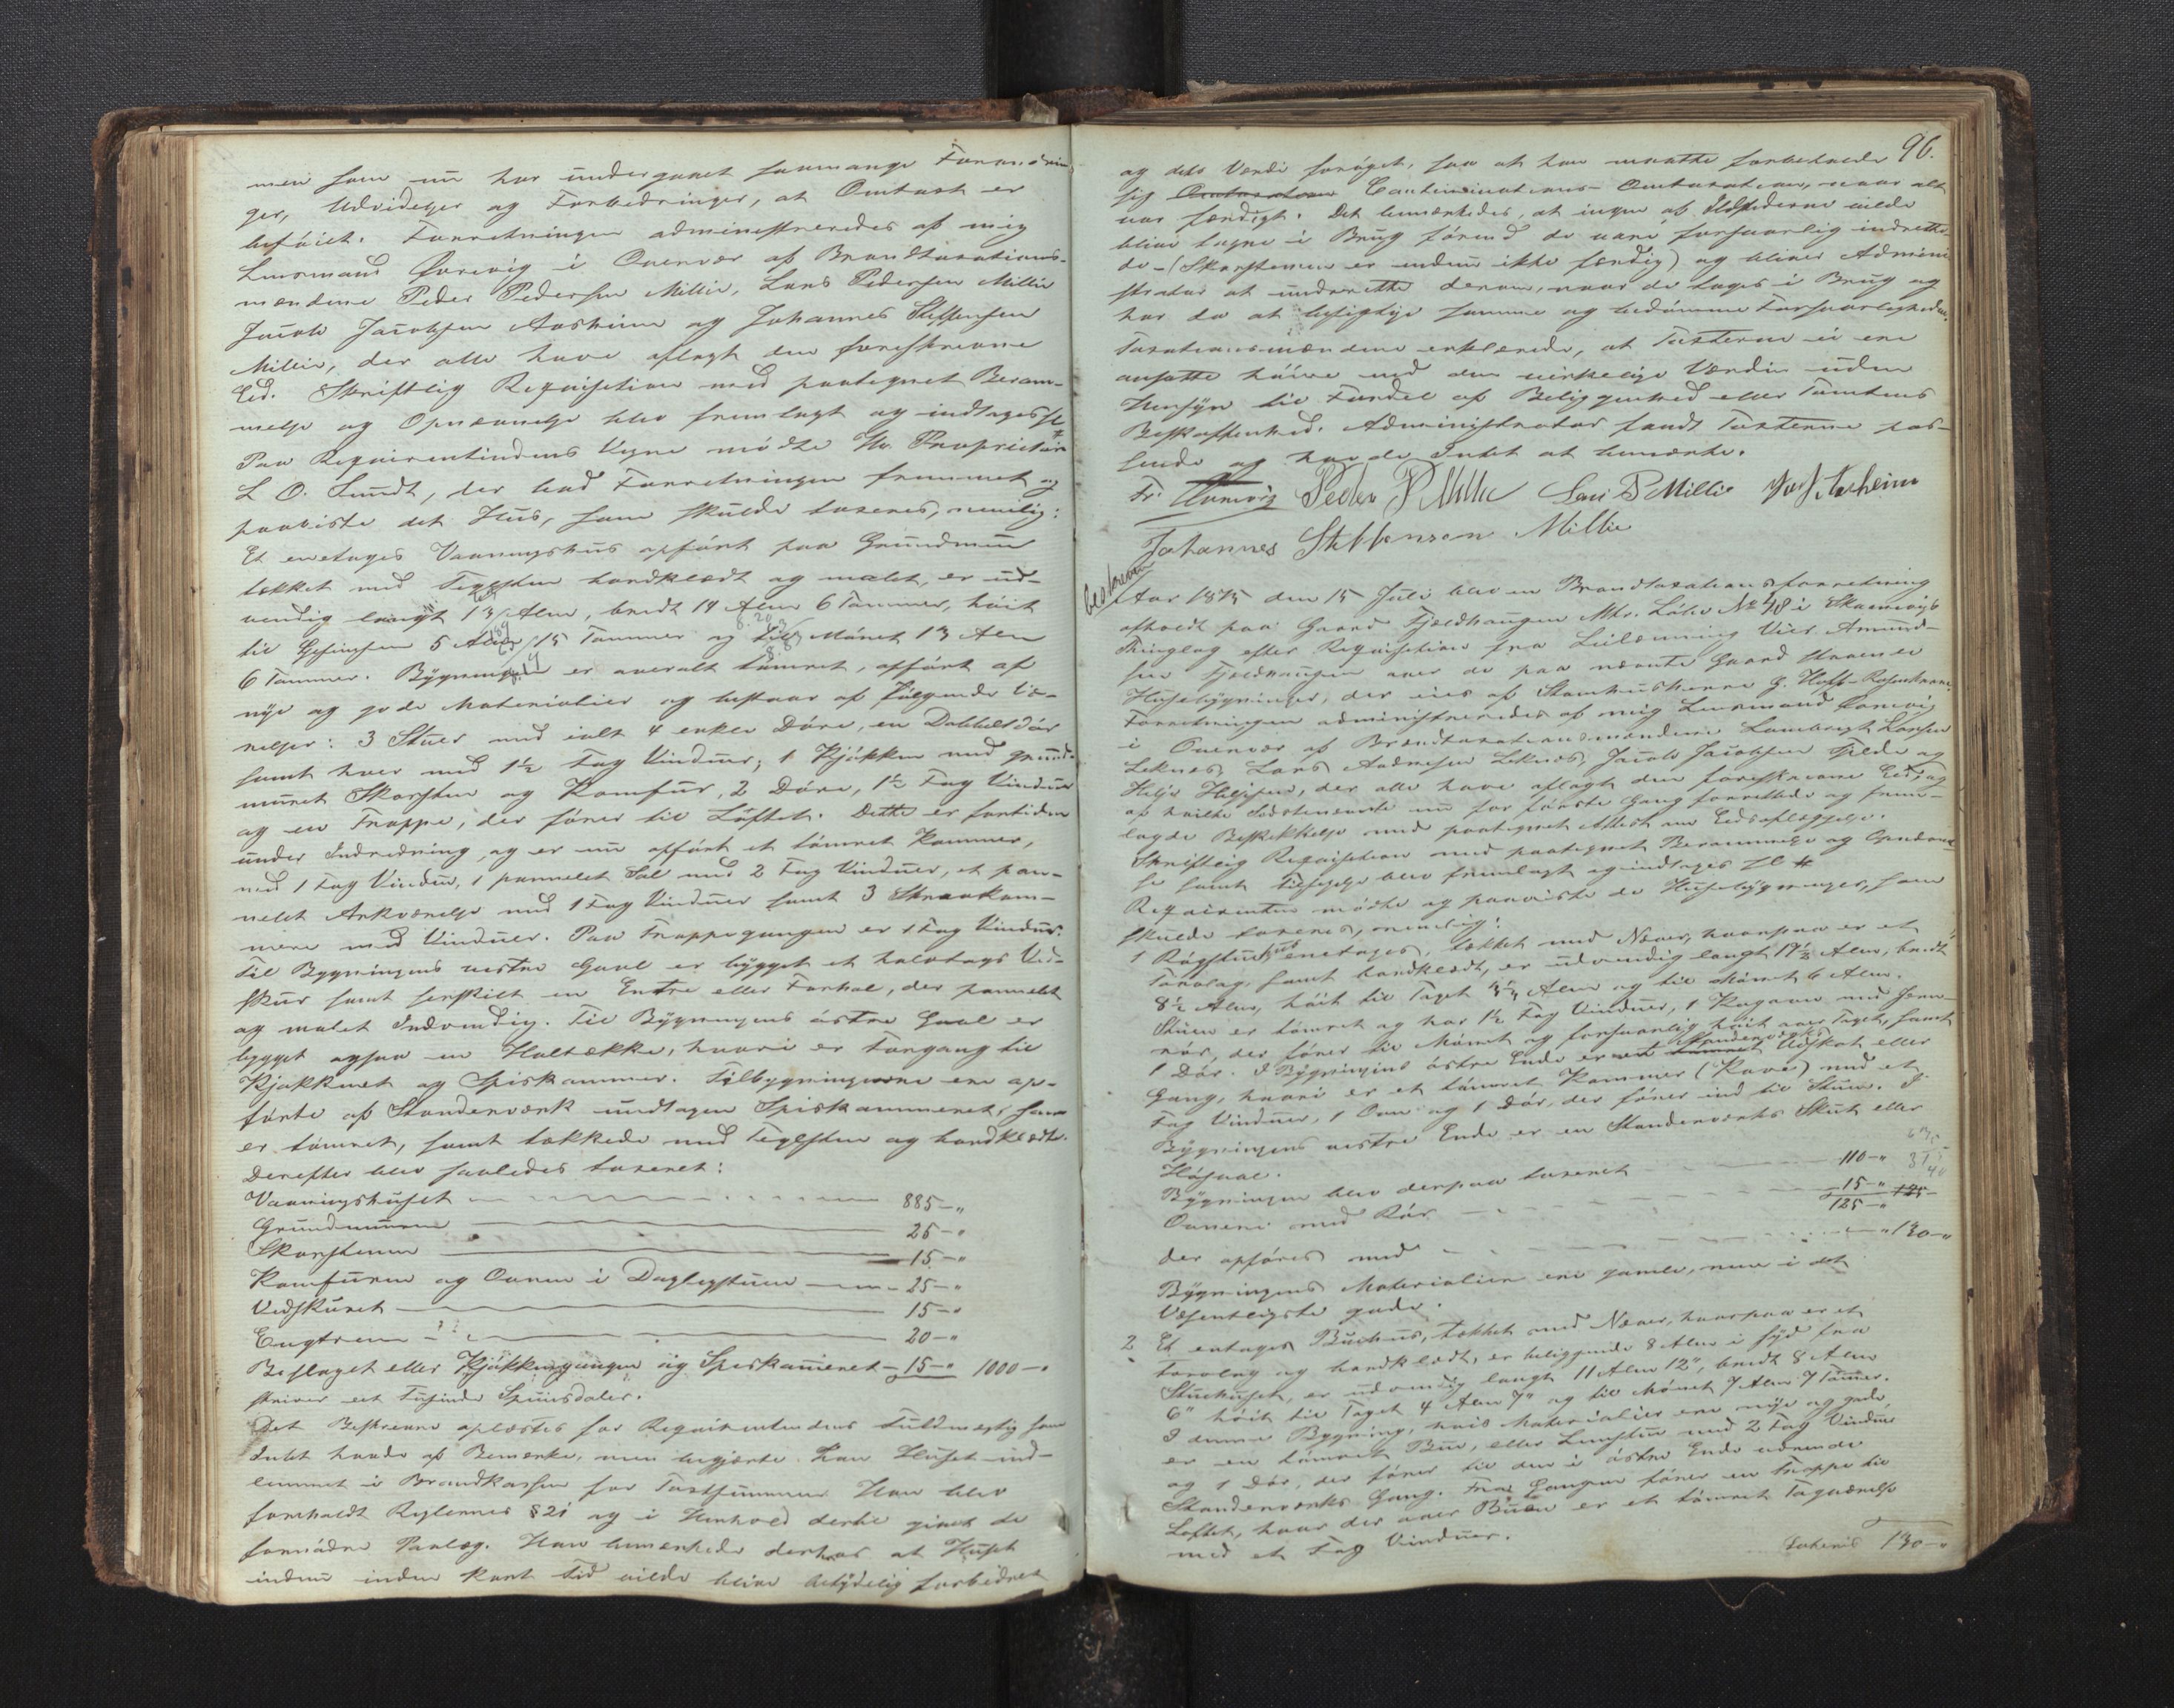 men som nu har undergaaet saamange Forandrin-
ger, Udvidelser og Forbedringer, at Omtaxt er
beføiet. Forretningen administreredes af mig
Lensmand Qvrevig i Overvær af Brandtaxations-
mændene Peder Pedersen Millie, Lars Pedersen Millie
Jacob Jacobsen Aasheim og Johannes Steffensen
Millie, der alle have aflagt den foreskrevne
Eed. Skriftlig Requisition med paategnet Beram-
melse og Opnævnelse blev fremlagt og indtages sl
Paa Requirentindens Vegne mødte Hr. Proprietær
L O. Sundt, der bad Forretningen fremmet og
paaviste det Huus, som skulde taxeres, nemlig:
Et enetages Vaaningshuus opført paa Grundmuur
tækket med Teglsten bordklædt og malet, er ud-
vendig langt 13 Alen, bredt 14 Alen 6 Tommer, høit
til Gesimsen 5 Alen 15 Tommer og til Mønet 13 Alen
6 Tommer. Bygningen er overalt tømret, opført af
nye og gode Materialier og bestaar af følgende Væ-
relser: 3 Stuer med ialt 4 enkle Døre, en Dobbeldør
samt hver med 1½ Fag Vinduer; 1 Kjøkken med grund-
muret Skorsten og Komfur, 2 Døre, 1½ Fag Vinduer
og en Trappe, der fører til Loftet. Dette er fortiden
under Indredning, og er nu opført et tømret Kammer,
med 1 Fag Vindu, 1 pannelet Sal med 2 Fag Vinduer, et pan-
nelet Arkværelse med 1 Fag Vinduer samt 3 Skraakam-
mere med Vinduer. Paa Trappegangen er 1 Fag Vinduer.
Til Bygningens vestre Gavl er bygget et halvtags Ved-
skur samt særskilt en Entre eller Forhal, der pannelet
og malet Indvendig. Til Bygningens østre Gavl er
bygget ogsaa en Haltække, hvori er Forgang til
Kjøkkenet og Spiskammer. Tilbygningerne ere op-
førte af Standerværk undtagen Spiskammeret, som
er tømret, samt tækkede med Teglsten og bordklædte.
Derefter blev saaledes taxeret:
Vaaningshuset 885-"
Grundmuren 25-"
Skorstenen 15-"
Komfuren og Ovnen i Dagligstuen 25-"
Vedskuret 15-"
Engtreen 20-"
Beslaget eller Kjøkkengangen og Spiskameret - 15-" 1000-"
skriver eet Tusinde Speciedaler.
Det Beskrevne oplæstes for Requirentindens Fuldmægtig som
Intet havde at Bemærke, men begjærte Huset ind-
lemmet i Brandkassen for Taxtsummen Han blev
foreholdt Reglernes § 21 og i Henhold dertil givet de
fornødne Paalæg. Han bemærkede derhos at Huset
endnu inden kort Tid vilde blive betydelig forbedret
96.
og dets Værdi forøget, saa at han maatte forbeholde
sig Omtaxation Continuations-Omtaxation, naar alt
var færdigt. Det bemærkedes, at ingen af Ildstederne vilde
blive tagne i Brug førend de vare forsvarlig indrette-
de - (Skorstenen er endnu ikke færdig) og bliver Admini
strator at underrette derom, naar de tages i Brug og
har da at besigtige samme og bedømme Forsvarligheden.
Taxationsmændene erklærede, at Taxterne ei ere
ansatte høiere end den virkelige Værdie uden
Hensyn til Fordel af Beliggenhed eller Tomtens
Beskaffenhed. Administrator fandt Taxterne pas-
sende og havde Intet at bemærke.
Peder P Millie Lars P Millie Jac J. Asheim
Johannes Steffensen Millie
beskreven
Aar 1875 den 15 Juli blev en Brandtaxationsforretning
afholdt paa Gaard Fjeldhaugen Mtr. Løbe No 48 i Skaanevigs
Thinglag efter Requisition fra Leilænding Vier Amund-
sen Fjeldhaugen over de paa nævnte Gaard staaende
Husebygninger, der eies af Stamhusherre Hoff-Rosenkrone.
Forretningen administreredes af mig Lensmand
i Overvær af Brandtaxationsmændene Lambregt Larsen
Leknæs, Lars Andersen Leknæs, Jacob Jacobsen Fjelde og
Helje Heljesen, der alle have aflagt den foreskrevne Eed, og
af hvilke Sidstnævnte nu for første Gang forrettede og frem-
lagde Beskikkelse med paategnet Attest om Eedsaflæggelse.
Skriftlig Requisition med paategnet Berammelse og Opnævnel-
se samt Tilsigelse blev fremlagt og indtages sl #
Requirenten mødte og paaviste de Husebygninger, som
skulde taxeres, nemlig:
1 Røgstuehus enetages, tækket med Næver, hvorpaa er et
Torvlag samt bordklædt, er udvendig langt 17½ Alen, bredt
8½ Alen, høit til Taget 4¾ Alen og til Mønet 6 Alen.
Stuen er tømret og har 1½ Fag Vinduer, 1 Kogeovn med Jern-
rør, der fører til Mønet og forsvarlig høit over Taget, samt
1 Dør. I Bygningens østre Ende er et tømret Standerværks Udskot eller
Gang, hvori er et tømret Kammer (Kove) med et
Fag Vinduer, 1 Ovn og 1 Dør, der fører ind til Stuen. I
Bygningens vestre Ende er en Standerværks Skut eller
Høskaal.
Bygningen blev derpaa taxeret 110-"
Ovnene med Rør 15-" 125-
125-"
der opføres med "130-"
Bygningens Materialier ere gamle, men i det
Væsentligste gode.
2 Et enetages Buehus, tækket med Næver, hvorpaa er et
Torvlag og bordklædt, er beliggende 8 Alen i syd fra
Stuehuset, er udvendig langt 11 Alen 12", bredt 8 Alen
6" høit til Taget 4 Alen 7" og til Mønet 7 Alen 7 Tomer.
I denne Bygning, hvis Materialier ere nye og gode,
er en tømret Bue, eller Lemstue med 2 Fag Vinduer
og 1 Dør, der fører til den i østre Ende værende
Standerværks Gang. Fra Gangen fører en Trappe til
Loftet, hvor der over Buen er et tømret Tagværelse
med et Fag Vinduer.
Lateris 130-"